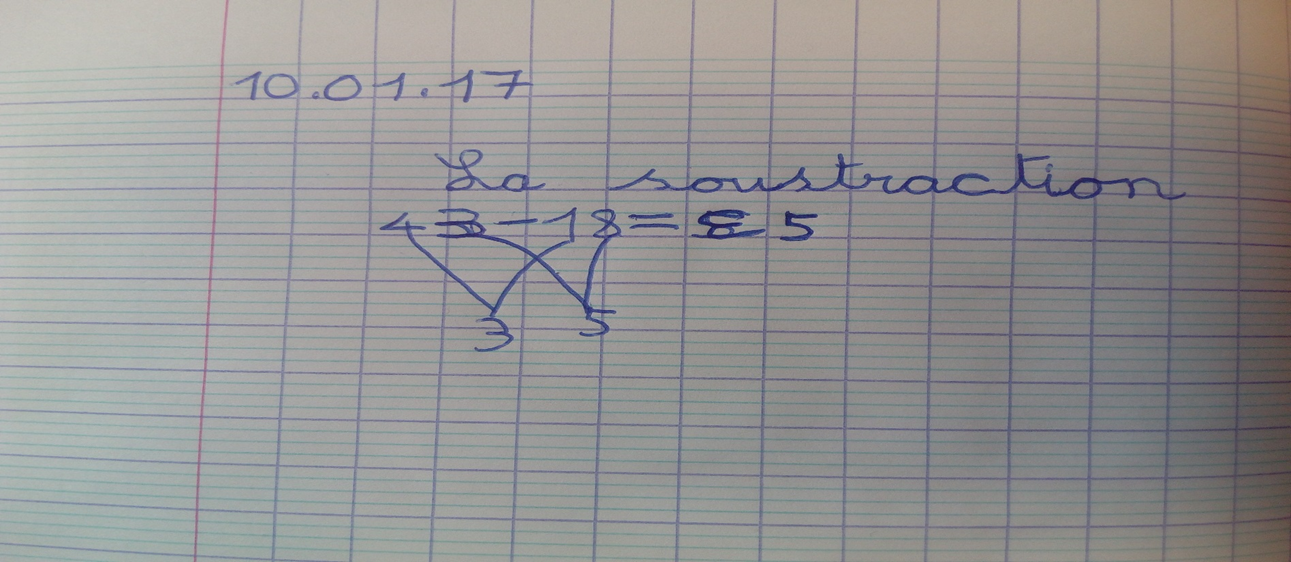 10.01.17
La soustraction
43-18= 25
3 5